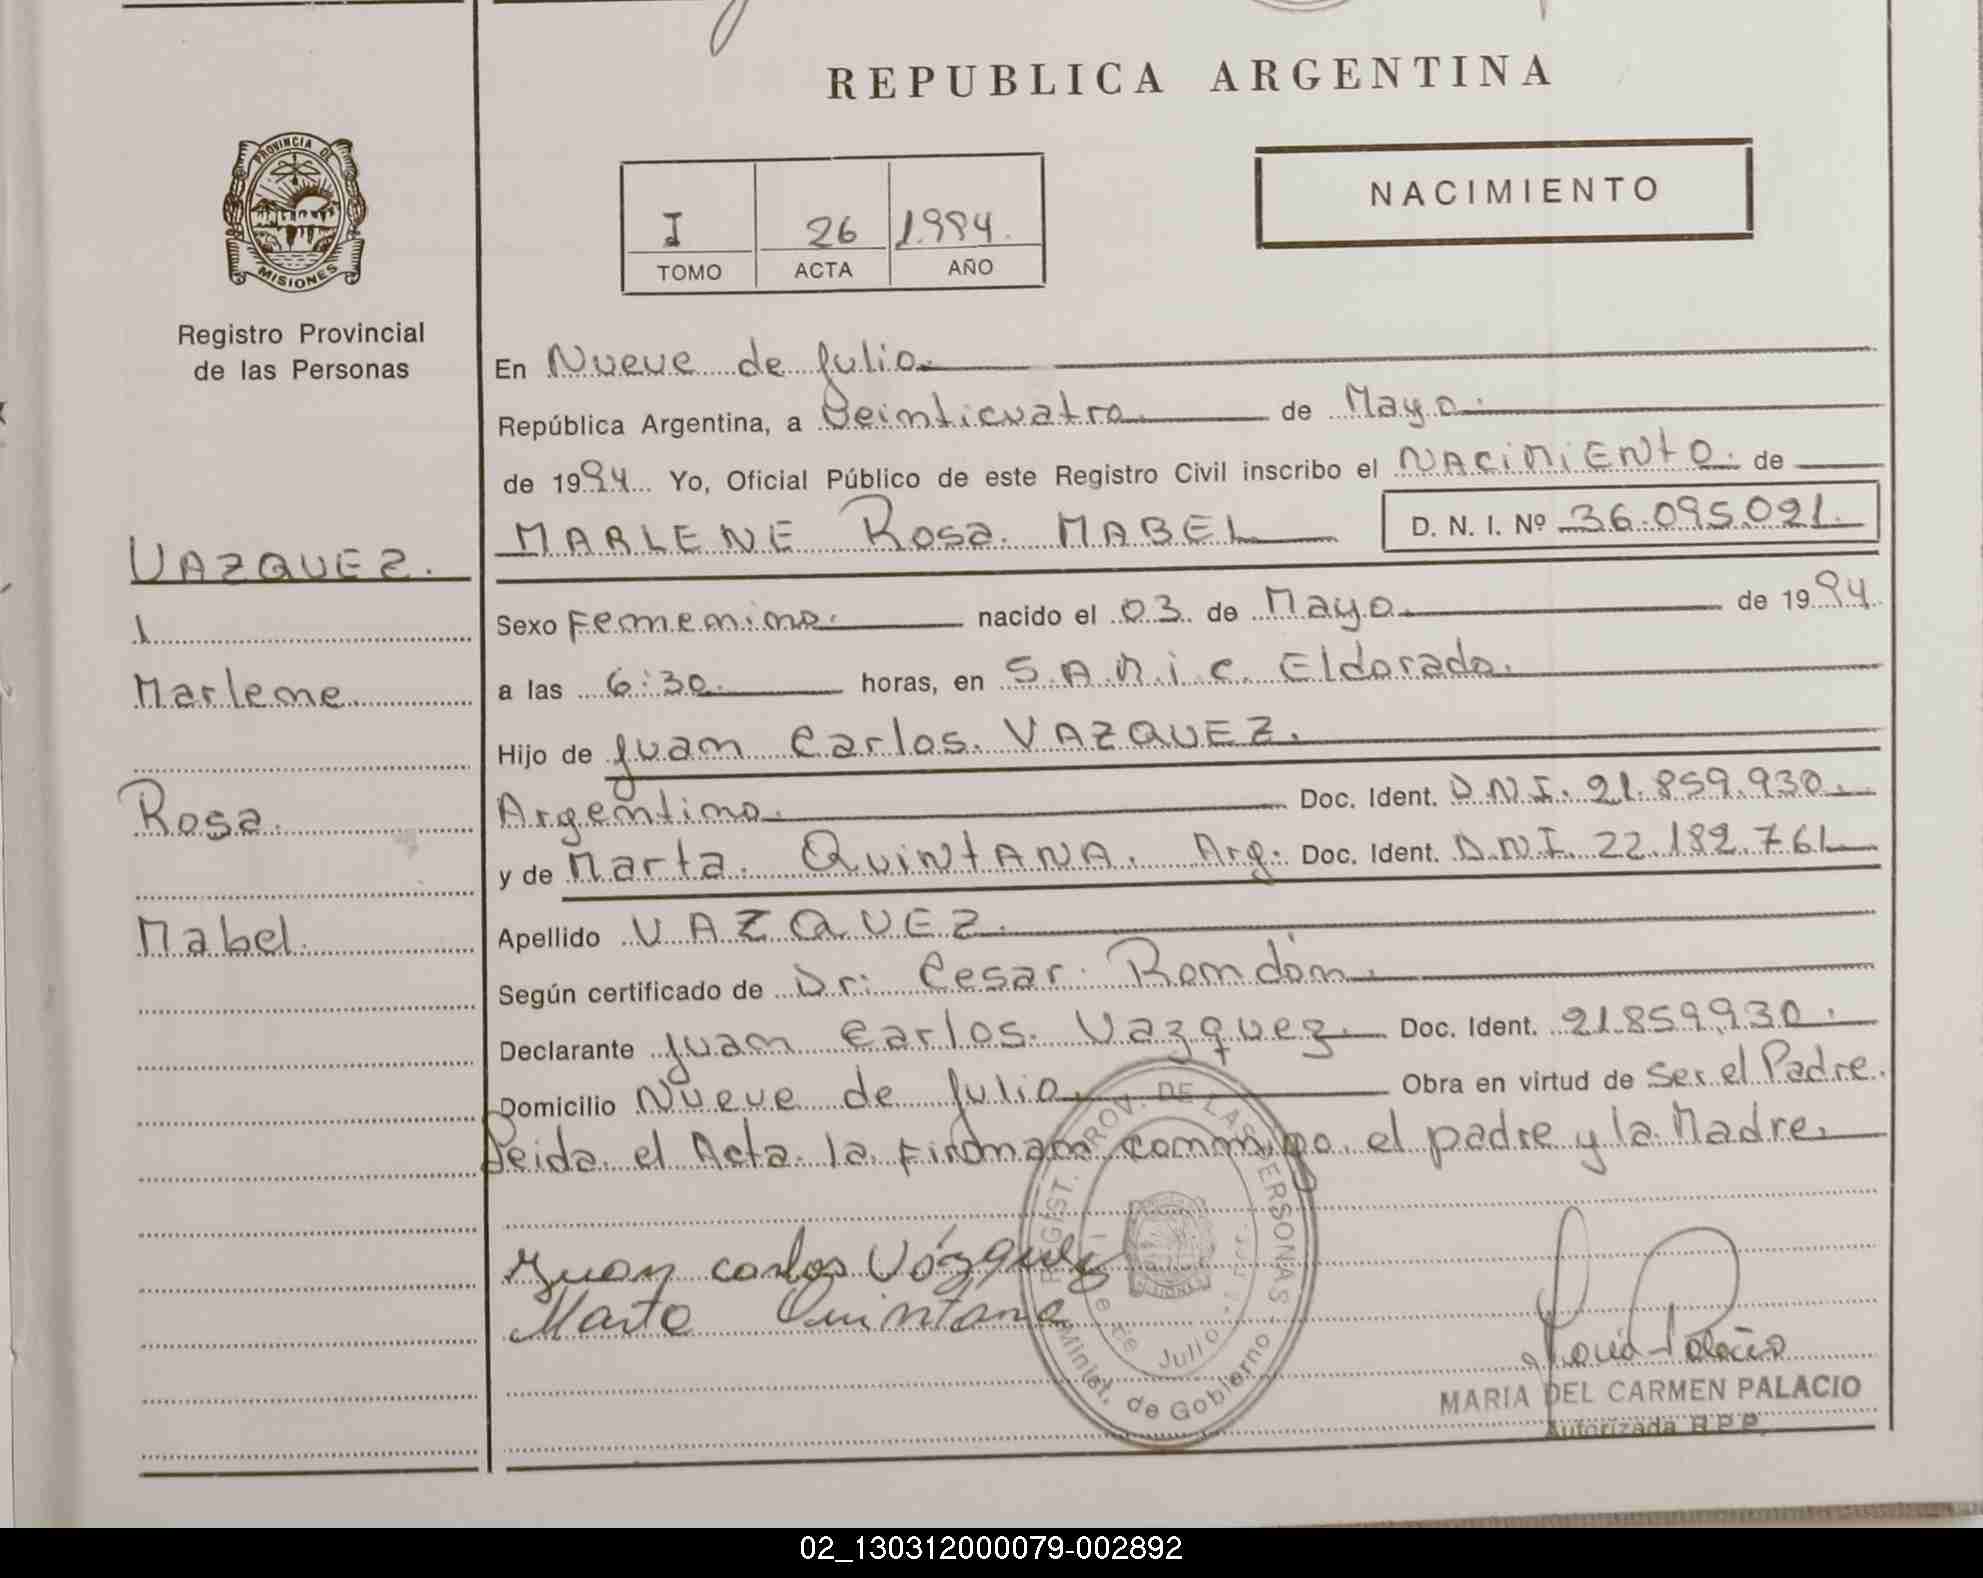 REPUBLICA ARGENTINA
PROVINCIA DE
MISIONES
Registro Provincial
de las Personas
I 26 1.994.
TOMO ACTA AÑO
NACIMIENTO
VAZQUEZ.
1
Marlene
Rosa
Mabel
En Nueve de Julio.
República Argentina, a Veinticuatro de Mayo.
de 1994 Yo, Oficial Público de este Registro Civil inscribo el NACIMIENTO. de
MARLENE Rosa MABEL D. N. I. Nº 36.095.021.
Sexo Femenino. nacido el 03 de Mayo de 1994
a las 6:30 horas, en S.A.M.i.c. Eldorado.
Hijo de Juan Carlos. VAZQUEZ.
Argentino. Doc. Ident. D.N.I. 21.859.930.
y de Marta. QUINTANA. Arg. Doc. Ident. D.N.I. 22.182.761
Apellido VAZQUEZ.
Según certificado de Dr: Cesar Romdón.
Declarante Juan Carlos. Vazquez. Doc. Ident. 21859930.
Domicilio Nueve de Julio. Obra en virtud de Ser el Padre.
Leida el Acta la Firman conmigo el padre y la Madre.
Juan carlos Vázquez
Marta Quintana
REGIST. PROV. DE LAS PERSONAS
de Julio
Minist. de Gobierno
MARIA DEL CARMEN PALACIO
Autorizada R.P.P.
02_130312000079-002892